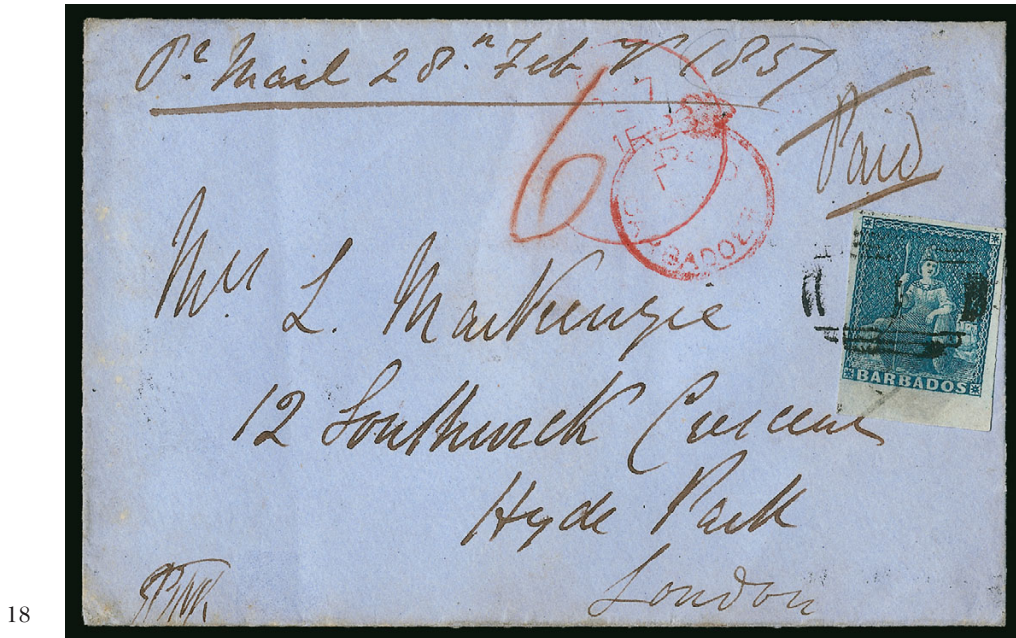 Pr Mail 28th Feby 1857
Paid
6
PAID
BARBADOES
Mrs L. MacKenzie
12 Southwick Crescent
Hyde Park
London
BARBADOS
18